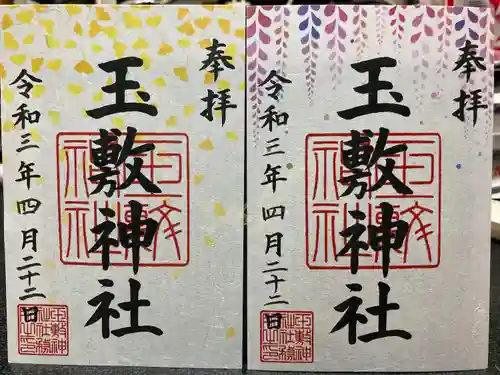 奉拝
玉敷神社
令和三年四月二十二日
奉拝
玉敷神社
令和三年四月二十二日